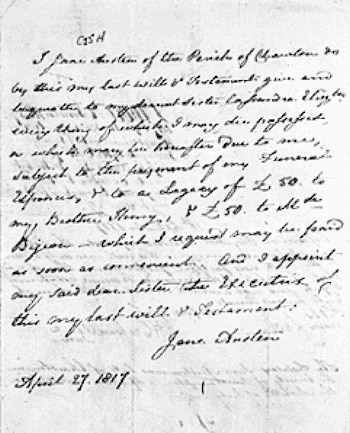 I Jane Austen of the Parish of Chawton do
by this my last Will & Testament give and
bequeath to my dearest Sister Cassandra Elizth
every thing of which I may die possessed,
or which may be hereafter due to me,
subject to the payment of my Funeral
Expences, & to a Legacy of £50. to
my Brother Henry, & £50. to Mde
Bigeon – which I request may be paid
as soon as convenient. And I appoint
my said dear Sister the Executrix of
this my last will & Testament.
Jane Austen
April 27. 1817